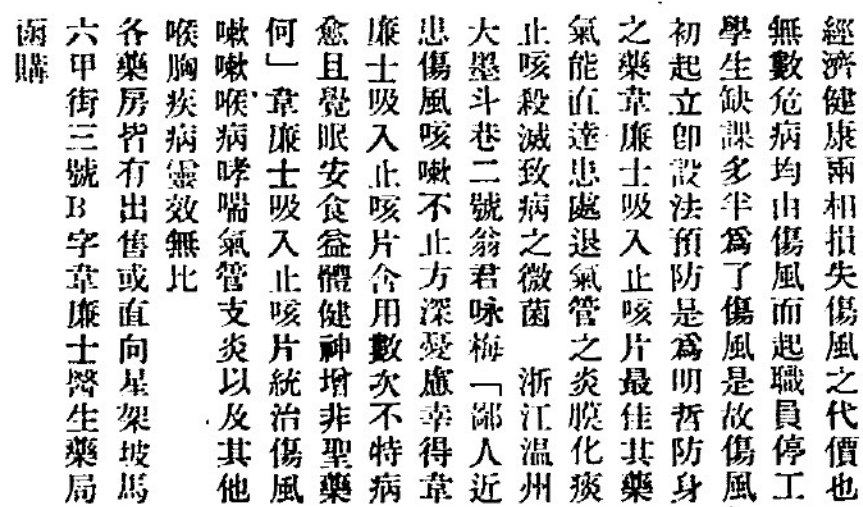 經濟健康兩相損失傷風之代價也
無數危病均由傷風而起職員停工
學生缺課多半爲了傷風是故傷風
初起立卽設法預防是爲明哲防身
之藥韋廉士吸入止咳片最佳其藥
氣能直達患處退氣管之炎膜化痰
止咳殺滅致病之微菌　浙江温州
大墨斗巷二號翁君咏梅「鄙人近
患傷風咳嗽不止方深憂慮幸得韋
廉士吸入止咳片含用數次不特病
愈且覺眠安食益體健神增非聖藥
何」韋廉士吸入止咳片統治傷風
嗽嗽喉病哮喘氣管支炎以及其他
喉胸疾病靈效無比
各藥房皆有出售或直向星架坡馬
六甲街三號B字韋廉士醫生藥局
函購